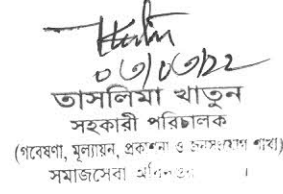 ০৩/০৩/২২
তাসলিমা খাতুন
সহকারী পরিচালক
(গবেষণা, মূল্যায়ন, প্রকাশনা ও জনসংযোগ শাখা)
সমাজসেবা